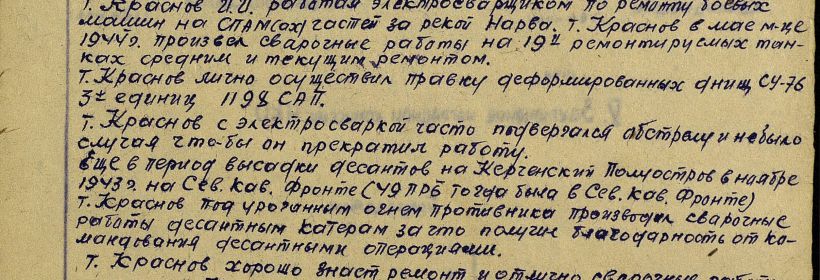 т. Краснов И.И. работая электросварщиком по ремонту боевых
машин на СПАМ(ах) частей за рекой Нарва. т. Краснов в мае м-це
1944г. произвел сварочные работы на 19и ремонтируемых тан-
ках средним и текущим ремонтом.
т. Краснов лично осуществил правку деформированных днищ СУ-76
3х единиц 1198 САП.
т. Краснов с электросваркой часто подвергался обстрелу и небыло
случая что-бы он прекратил работу.
Еще в период высадки десантов на Керченский Полуостров в ноябре
1943г. на Сев. Кав. Фронте (49 ПРБ тогда была в Сев. Кав. Фронте)
т. Краснов под ураганным огнем противника производил сварочные
работы десантным катерам за что получил благодарность от ко-
мандования десантными операциями.
т. Краснов хорошо знает ремонт и отлично сварочные